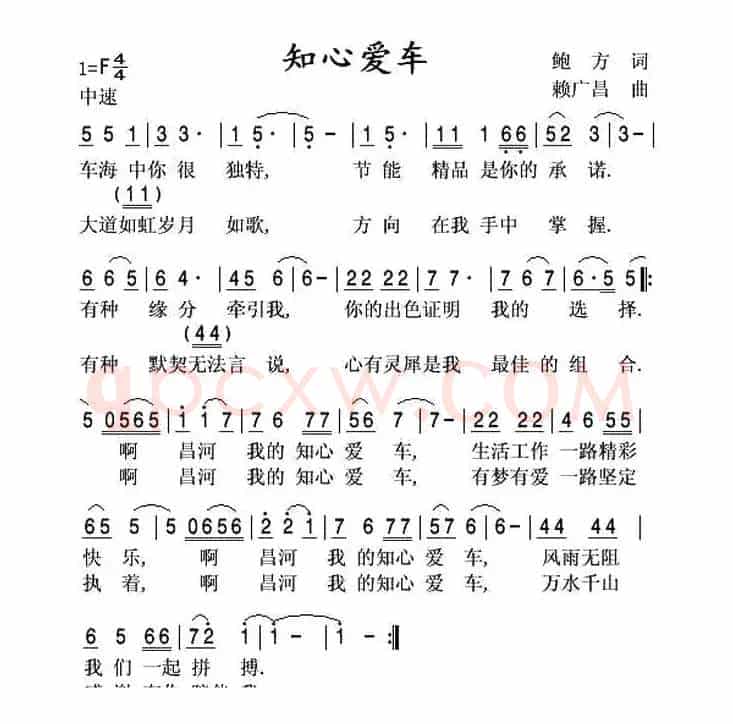 知心爱车
1=F 4/4
鲍 方 词
中速
赖广昌 曲
5 5 1 | 3 3· | 1 5· | 5 - | 1 5· | 11 1 66 | 52 3 | 3 - |
车海 中你 很 独特, 节 能 精品 是你的 承 诺.
(11)
大道如虹岁月 如歌, 方 向 在我 手中 掌 握.
6 6 5 | 6 4· | 45 6 | 6 - | 22 22 | 7 7· | 7 6 7 | 6·5 5 :
有种 缘 分 牵引我, 你的出色证明 我的 选 择.
(44)
有种 默契无法言 说, 心有灵犀是我 最佳 的 组 合.
apcxw.COM
5 0565 | i i 7 | 7 6 77 | 56 7 | 7 - | 22 22 | 4 6 55 |
啊 昌河 我的 知心 爱 车, 生活工作 一路精彩
啊 昌河 我的 知心 爱 车, 有梦有爱 一路坚定
65 5 | 5 0656 | 2 2 i | 7 6 77 | 57 6 | 6 - | 44 44 |
快 乐, 啊 昌河 我 的知心 爱 车, 风雨无阻
执 着, 啊 昌河 我 的知心 爱 车, 万水千山
6 5 66 | 72 i | i - | i - :||
我 们 一起 拼 搏.